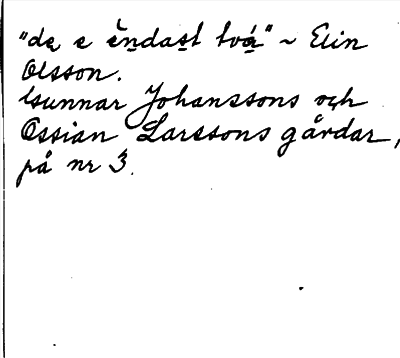 "dę e ĕndast två" ~ Elin
Olsson.
Gunnar Johanssons och
Ossian Larssons gårdar,
på nr 3.